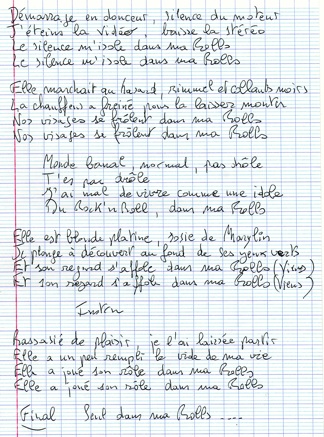 Démarrage en douceur, silence du moteur
J'éteins la vidéo, baisse la stéréo
Le silence m'isole dans ma Rolls
Le silence m'isole dans ma Rolls
Elle marchait au hasard, rimmel et collants noirs
La chauffeur a freiné pour la laisser monter
Nos visages se frôlent dans ma Rolls
Nos visages se frôlent dans ma Rolls
Monde banal, normal, pas drôle
T'es pas drôle
J'ai mal de vivre comme une idole
Du Rock'n Roll, dans ma Rolls
Elle est blonde platine, sosie de Marylin
Je plonge à découvert au fond de ses yeux verts
Et son regard s'affole dans ma Rolls (Viens)
Et son regard s'affole dans ma Rolls (Viens)
Instru
Rassasié de plaisir, je l'ai laissée partir
Elle a un peu rempli le vide de ma vie
Elle a joué son rôle dans ma Rolls
Elle a joué son rôle dans ma Rolls
Final Seul dans ma Rolls ....